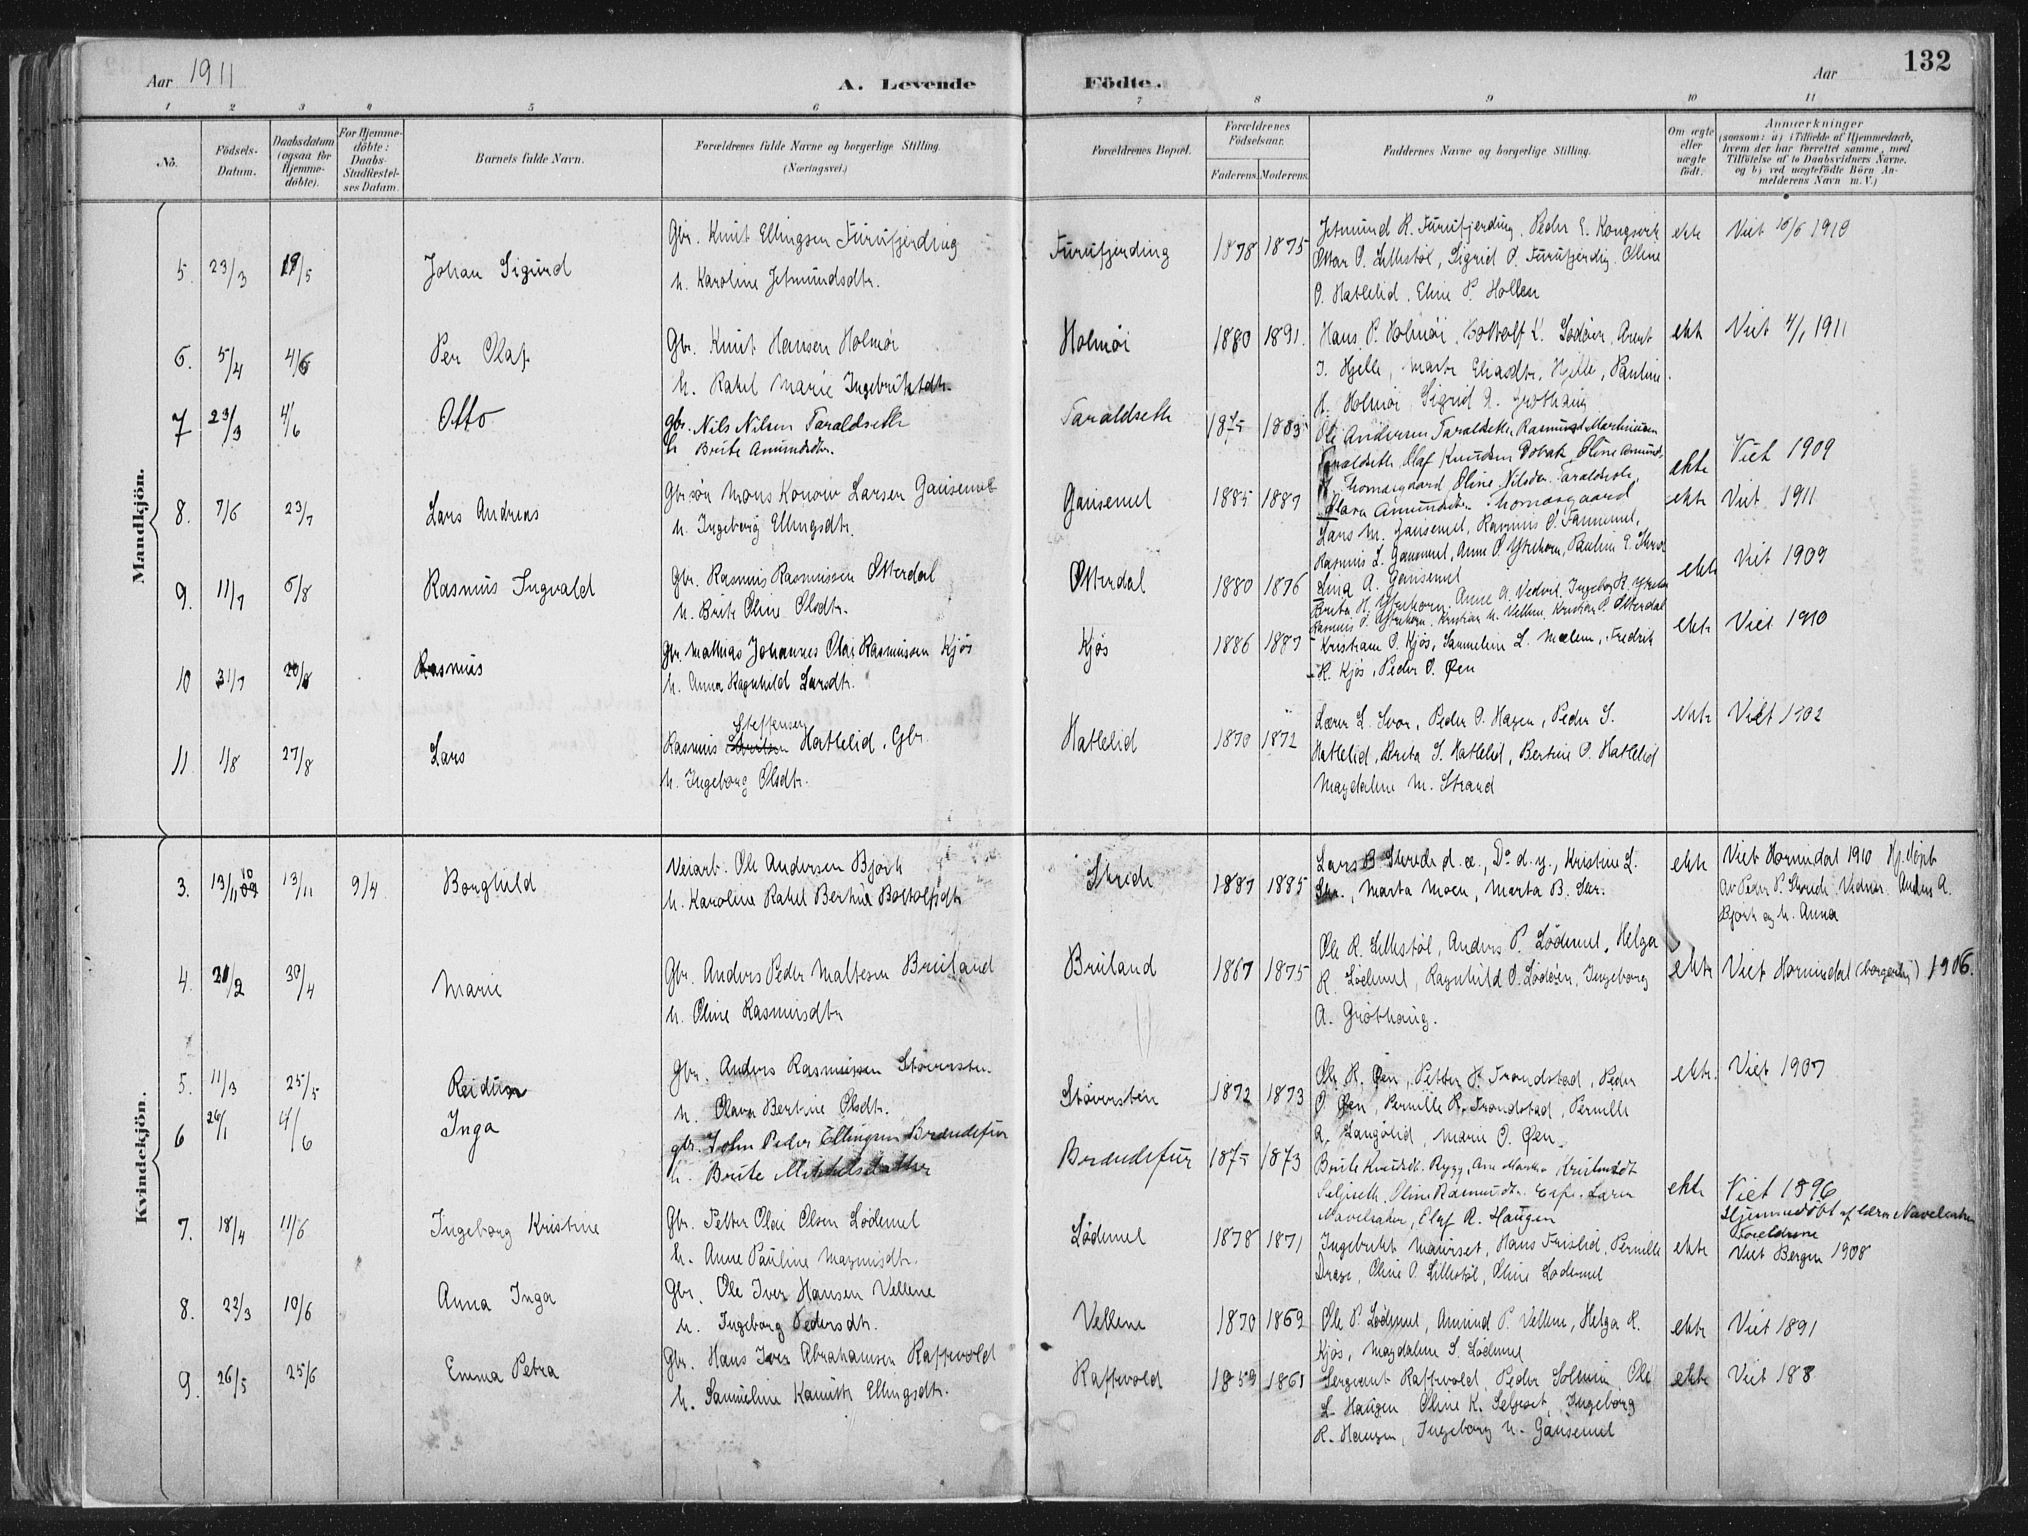 Aar 1911
A. Levende
Födte.
Aar
132
1 2 3 4 5 6 7 8 9 10 11
No.
Födsels-
Datum.
Daabsdatum
(ogsaa for
Hjemme-
döbte).
For Hjemme-
döbte:
Daabs-
Stadfæstel-
ses Datum.
Barnets fulde Navn.
Forældrenes fulde Navne og borgerlige Stilling.
(Næringsvei.)
Forældrenes Bopæl.
Forældrenes
Födselsaar.
Faderens. Moderens.
Faddernes Navne og borgerlige Stilling.
Om ægte
eller
uægte
født.
Anmærkninger
(saasom: a) i Tilfælde af Hjemmedaab,
hvem der har forrettet samme, med
Tilføielse af to Daabsvidners Navne,
og b) ved uægtefødte Börn An-
melderens Navn m. V.)
Mandkjön.
5. 23/3 19/5 Johan Sigurd
Gbr. Knut Ellingsen Furufjerding
h. Karoline Jetmundsdtr.
Furufjerding 1878 1875
Jetmund R. Furufjerding, Peder E. Kongsvik
Ottar O. Lillestøl, Sigrid O. Furufjerding, Oline
O. Hatlelid, Eline P. Hollen
ekte Viet 10/6 1910
6. 5/4 4/6 Per Olaf
Gbr. Knut Hansen Holmøi
h. Rakel Marie Ingebriktsdtr.
Holmøi 1880 1891
Hans P. Holmøi, Bottolf L. Lødøen, Arent
I. Hjelle, Marte Eliasdtr. Hjelle, Pauline
H. Holmøi, Sigrid A. Grøthaug
ekte Viet 4/1 1911
7 23/3 4/6 Otto
gbr. Nils Nilsen Taraldseth
h Brite Amundsdtr.
Taraldseth 1875 1883
Ole Andersen Taraldseth, Rasmus Martinusen
Taraldseth, Olaf Knudsen Dobak, Oline Amunds.
Thomasgaard, Oline Nilsdtr. Taraldseth,
Olava Amundsdtr. Thomasgaard
ekte Viet 1909
8. 7/6 23/7 Lars Andreas
Gbrsøn Mons Konow Larsen Gausemel
h. Ingeborg Ellingsdtr.
Gausemel 1885 1887
Lars M. Gausemel, Rasmus O. Tannemel,
Rasmus L. Gausemel, Anne O. Ytrehorn, Pauline E. Skrede
Lina A. Gausemel
ekte Viet 1911
9. 11/7 6/8 Rasmus Ingvald
Gbr. Rasmus Rasmussen Otterdal
h. Brite Oline Olsdtr.
Otterdal 1880 1876
Brita H. Ytrehorn, Anne A. Vedvik, Ingeborg R. Ytrehorn
Rasmus O. Ytrehorn, Kristian M. Vellene, Kristian P. Otterdal
ekte Viet 1909
10 31/7 20/8 Rasmus
Gbr. Mathias Johannes Olai Rasmussen Kjøs
h. Anna Ragnhild Larsdtr.
Kjøs 1886 1887
Kristiane O. Kjøs, Samueline L. Mælen, Fredrik
R. Kjøs, Peder O. Øen
ekte Viet 1910
11 1/8 27/8 Lars
Steffensen
Rasmus Hatlelid, Gbr.
h. Ingeborg Olsdtr.
Hatlelid 1870 1872
Lærer L. Svor, Peder O. Hagen, Peder S.
Hatlelid, Brita S. Hatlelid, Bertine O. Hatlelid
Magdalene M. Strand
ekte Viet 1902
Kvindekjön.
3. 13/11 10 13/11 9/4 Borghild
Veiarb. Ole Andersen Bjørk
h. Karoline Rakel Bertine Bottolfsdtr
Skrede 1887 1885
Lars B Skrede d. æ., Do d. y., Kristine L.
Skr., Marta Moen, Marta B. Skr.
ekte Viet Hornindal 1910 Hj. døpt
av Peder P. Skrede. Vidner: Anders A.
Bjørk og h. Anna
4. 21/2 30/4 Marie
Gbr. Anders Peder Maltesen Breiland
h. Oline Rasmusdtr
Breiland 1867 1875
Ole R. Lillestøl, Anders P. Lødemel, Helga
R. Lødemel, Ragnhild O. Lødøen, Ingeborg
A. Grøthaug.
ekte Viet Hornindal (borgerlig) 1906.
5. 11/3 25/5 Reidun
Gbr. Anders Rasmussen Størersten
h. Olava Bertine Olsdtr.
Størersten 1872 1873
Ole R. Øen, Petter P. Trondstad, Peder
O. Øen, Pernille R. Trondstad, Pernille
A. Langølid, Marie O. Øen.
ekte. Viet 1907
6 26/1 4/6 Inga
gbr. John Peder Ellingsen Brandefur
h. Brite Mikkelsdatter
Brandefur 1875 1873
Brite Knudsdt. Rygg, Ane Marthe
Seljeseth, Oline Rasmusdtr. Lærer
Navelsaker, Elef R. Haugen
ekte Viet 1896
Hjemmedøbt af lærer Navelsaker
Foreldrene
7. 18/4 11/6 Ingeborg Kristine
Gbr. Petter Olai Olsen Lødemel
h. Anne Pauline Magnusdtr.
Lødemel 1878 1871
Ingebrikt Maurset, Hans Frislid, Pernille
Drage, Oline O. Lillestøl, Oline Lødemel
ekte Viet Bergen 1908
8. 22/3 10/6 Anna Inga
Gbr. Ole Iver Hansen Vellene
h. Ingeborg Pedersdtr.
Vellene 1870 1869
Ole P. Lødemel, Amund P. Vellene, Helga R.
Kjøs, Magdalene S. Lødemel
ekte Viet 1891
9. 26/5 25/6 Emma Petra
Gbr. Hans Iver Abrahamsen Raftevold
h. Samueline Kamilla Ellingsdtr.
Raftevold 1859 1861
Sergeant Raftevold, Peder Solheim, Ole
L. Haugen, Oline K. Seljeset, Ingeborg
R. Haugen, Ingeborg M. Gausemel
ekte Viet 188